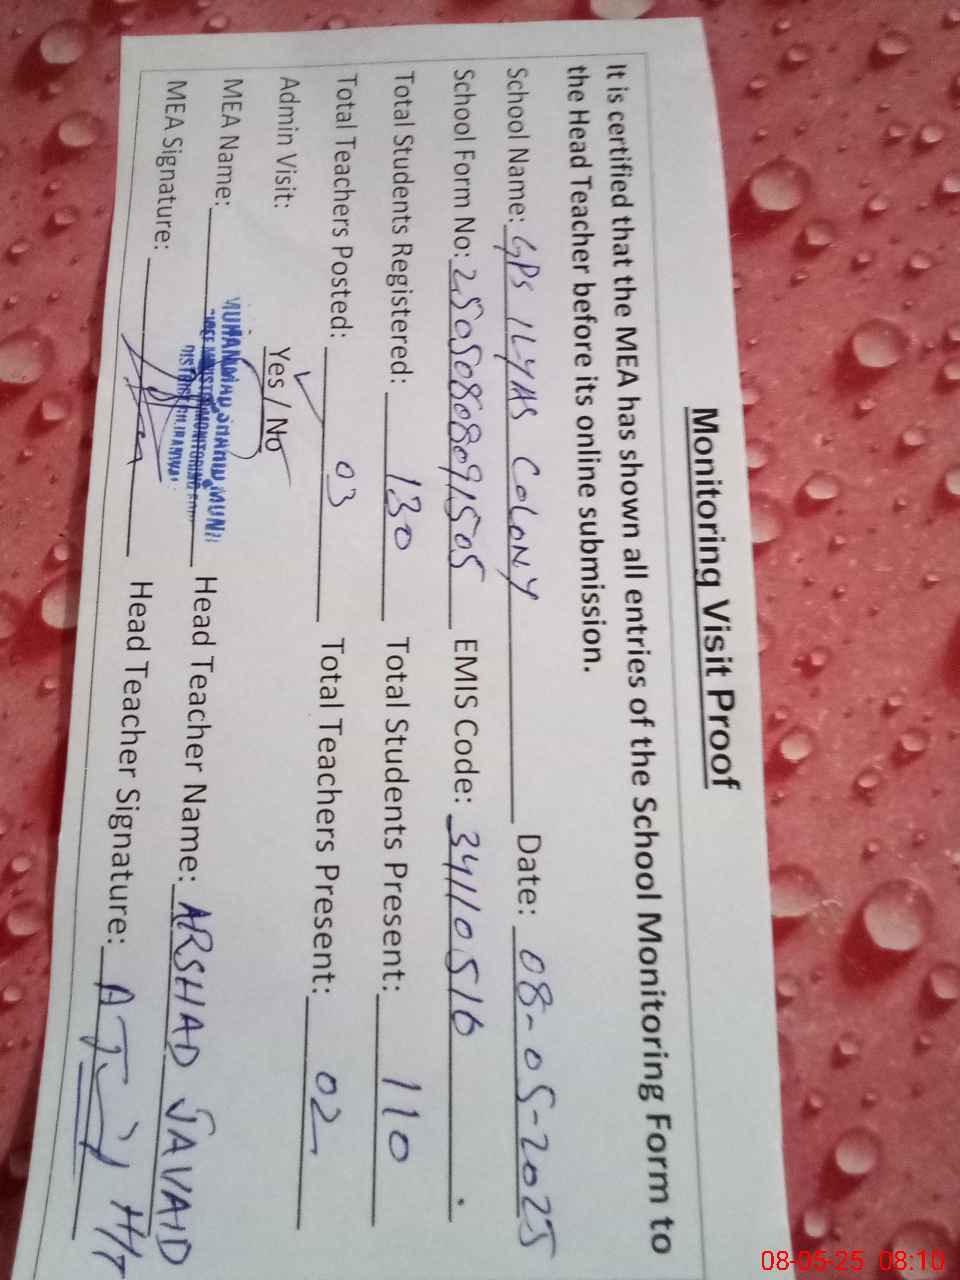 Monitoring Visit Proof
It is certified that the MEA has shown all entries of the School Monitoring Form to
the Head Teacher before its online submission.
School Name: GPS ILYAS COLONY Date: 08-05-2025
School Form No: 2505080891505 EMIS Code: 34110516
Total Students Registered: 130 Total Students Present: 110
Total Teachers Posted: 03 Total Teachers Present: 02
Admin Visit: Yes / No
MEA Name: MUHAMMAD SHAHID MUNIR Head Teacher Name: ARSHAD JAVAID
DISTRICT
MEA Signature: Head Teacher Signature: H/T
08-05-25 08:10